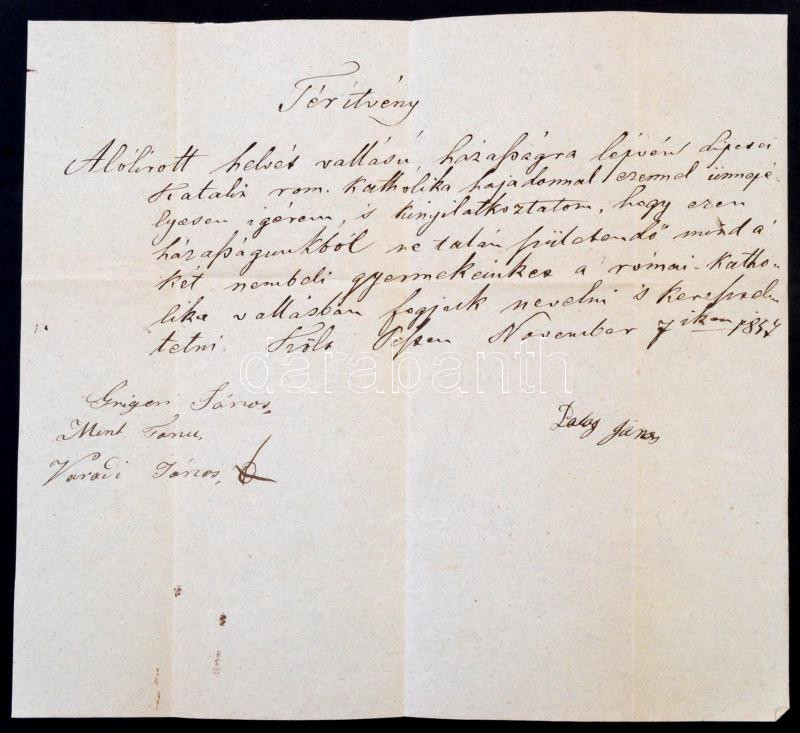 Térítvény
Alólirott helvét vallásu, házasságra lépvén Lipcsei
Katalin rom. Kathólika hajadonnal ezennel ünnepé-
lyesen igérem, 's kinyilatkoztatom, hogy ezen
házasságunkból ne talán születendő mind a
két nembeli gyermekeinket a római-katho-
lika vallásban fogjuk nevelni 's keresztel-
tetni. November 7 ikén 1857
darabanth
Grigen János,
Mint Tanu,
Varadi János,
János